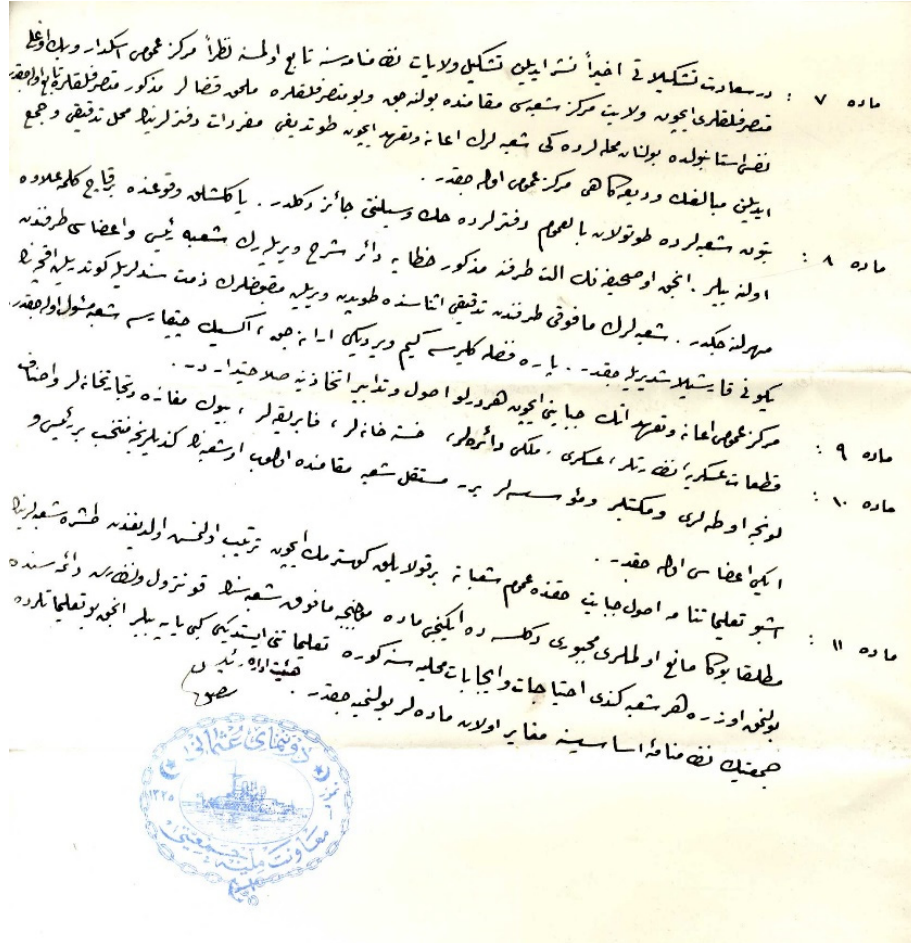 ماده ٧ : درسعادت تشكيلاتی اخيراً نشر ايديلن تشكيل ولايات نظامنامه سنه تابع اولمسنه نظراً مركز عمومی اسكدار وبك اوغلی
متصرفلقلری ايچون ولايت مركز شعبه سی مقامنده بولنه جق وبو متصرفلقلره ملحق قضالر مذكور متصرفلقلره تابع اوله جقدر
نفس استانبولده بولنان محله لرده كی شعبه لرك اعانه وتعهد ايچون طوتديغی مفردات دفترلرينك محل تدقيقی وجمع
ايديلن مبالغك وديعه كاهی مركز عمومی اوله جقدر .
ماده ٨ : بتون شعبه لرده طوتولان بالعموم دفترلرده حك وسيلنتی جائز دكلدر . ياكلشلق وقوعنده برقاچ كلمه علاوه
اولنه بيلير . انجق او صحيفه نك الت طرفنه مذكور خطايه دائر شرح ويريله رك شعبه رئيس واعضاسی طرفندن
مهرلنه جكدر . شعبه لرك مافوقی طرفندن تدقيقی اثناسنده طوپدن ويريلن مقبوضلرك ذمت سندلريله كوندريلن اقچه نك
يكونی قارشيلاشديريله جقدر . پاره فضله كليرسه كيم ويرديكی ارانه جق ، اكسيك چيقارسه شعبه مسئول اوله جقدر .
ماده ٩ : مركز عمومی اعانه وتعهد انك جبايتی ايچون هر درلو اصول وتدابير اتخاذينه صلاحيتدار در .
ماده ١٠ : قطعات عسكريه ، نظارتلر ، عسكری ، ملكی دائره لر ، خسته خانه لر ، فابريقه لر ، بيوك مغازه وتجارتخانه لر واصناف
لونجه اوطه لری ومكتبلر ومؤسسه لر برر مستقل شعبه مقامنده اولوب او شعبه نك كنديلرنجه منتخب بر رئيس و
ايكی اعضاسی اوله جقدر .
ماده ١١ : اشبو تعليماتنامه اصول جبايت حقنده عموم شعباته برقولايلق كوسترمك ايچون ترتيب اولنمش اولديغندن طشره شعبه لرينك
مطلقا بوكا مانع اولملری مجبوری دكلسه ده ايكنجی ماده موجبنجه مافوق شعبه سنك قونترول ونظارت دائره سنده
بولنمق اوزره هر شعبه كندی احتياجات وايجابات محليه سنه كوره تعليماتنی ايستديكی كبی ياپه بيلير انجق بو تعليماتلرده
جمعيتك نظامنامهٔ اساسيسنه مغاير اولان ماده لر بولنميه جقدر .
هيئت اداره رئيسی
دونمای عثمانی
معاونت مليه جمعيتی
١٣٢٥